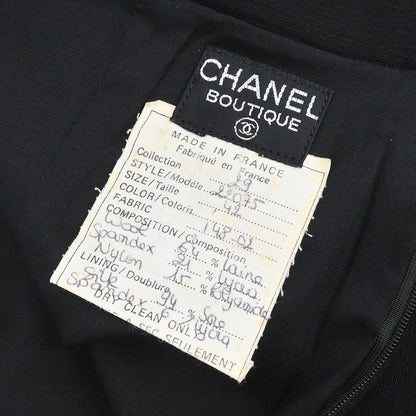 CHANEL
BOUTIQUE
MADE IN FRANCE
Fabriqué en France
Collection 29
STYLE/Modèle
SIZE/Taille
COLOR/Coloris
FABRIC 148.02
COMPOSITION/Composition
Wool 64 % Laine
Spandex 21 % Lycra
Nylon 15 % Polyamide
LINING/Doublure
Silk 94 % Soie
Spandex 6 % Lycra
DRY CLEAN ONLY
A SEC SEULEMENT